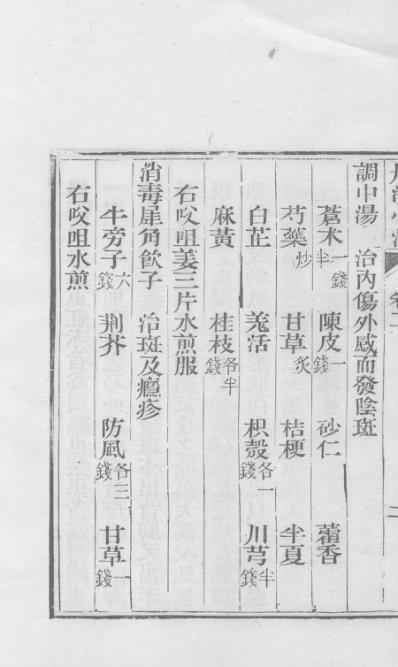 調中湯 治內傷外感而發陰斑
蒼术一錢半 陳皮一錢 砂仁 藿香
芍藥炒 甘草炙 桔梗 半夏
白芷 羗活 枳殼各一錢 川芎半錢
麻黃 桂枝各半錢
右㕮咀姜三片水煎服
消毒犀角飲子 治斑及癮疹
牛旁子六錢 荆芥 防風各三錢 甘草一錢
右㕮咀水煎